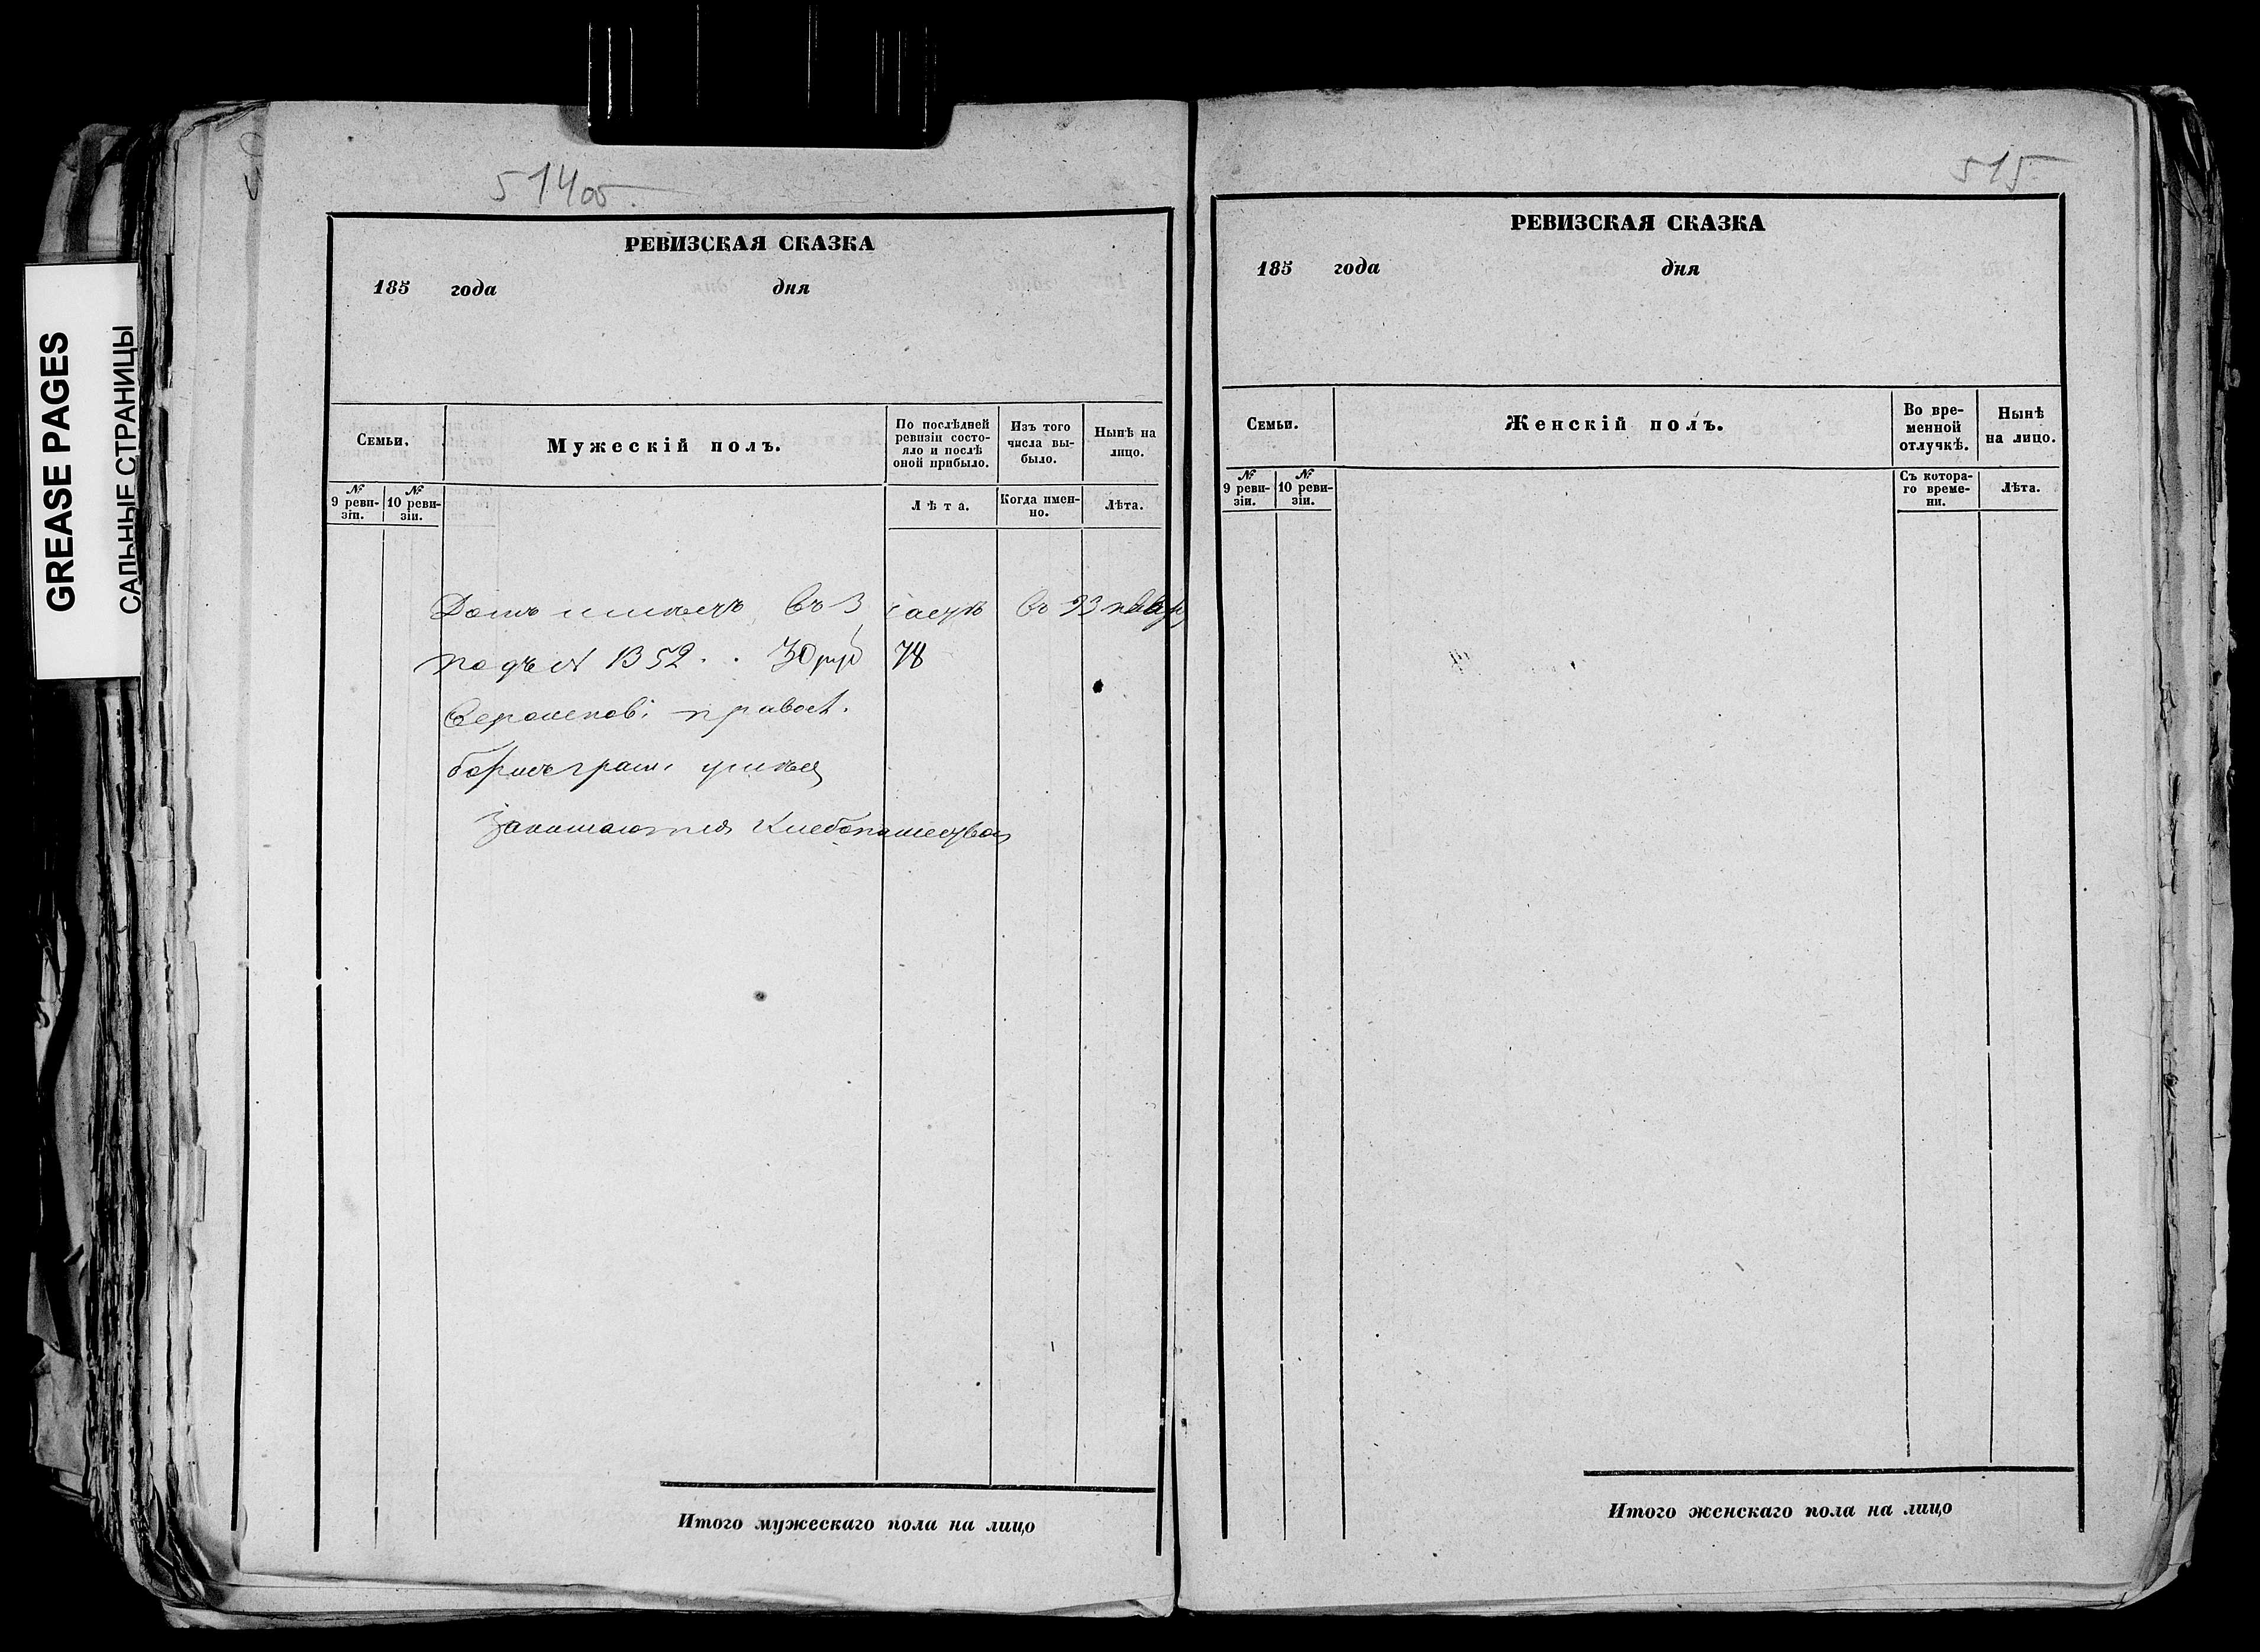 GREASE PAGES
САЛЬНЫЕ СТРАНИЦЫ
514об.
РЕВИЗСКАЯ СКАЗКА
185 года дня
Семьи.
Мужескій полъ.
По послѣдней ревизіи состояло и послѣ оной прибыло.
Изъ того числа выбыло.
Нынѣ на лицо.
№ 9 ревизіи.
№ 10 ревизіи.
Лѣта.
Когда именно.
Лѣта.
Домъ имѣетъ въ 3 части въ 93 кварт
подъ № 1352 . . 30 руб 78
Вероисповѣ. правосл.
грам.
Занимаются хлебопашествомъ
Итого мужескаго пола на лицо
515
РЕВИЗСКАЯ СКАЗКА
185 года дня
Семьи.
Женскій полъ.
Во временной отлучкѣ.
Нынѣ на лицо.
№ 9 ревизіи.
№ 10 ревизіи.
Съ котораго времени.
Лѣта.
Итого женскаго пола на лицо